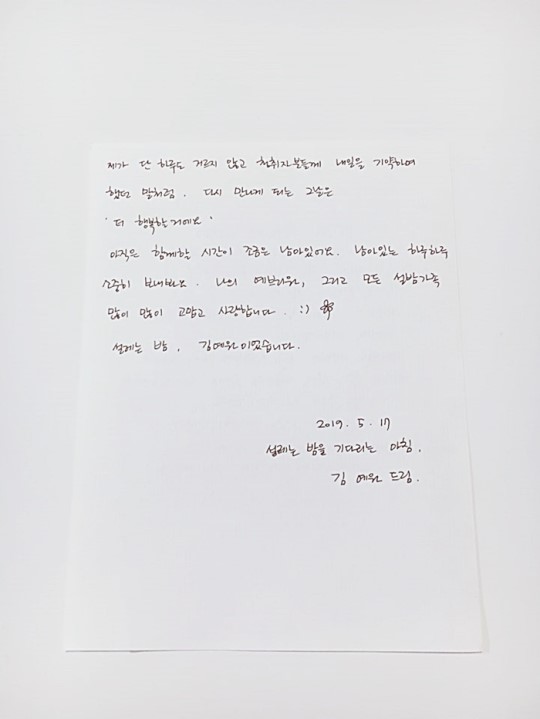 제가 단 하루도 거르지 않고 청취자분들께 내일을 기약하며
했던 말처럼. 다시 만나게 되는 그날은
'더 행복할거예요'
아직은 함께할 시간이 조금은 남아있어요. 남아있는 하루하루
소중히 보내봐요. 나의 예브리원, 그리고 모든 설밤가족
많이 많이 고맙고 사랑합니다. :)
설레는 밤, 김예원이었습니다.
2019. 5. 17
설레는 밤을 기다리는 아침,
김 예원 드림.